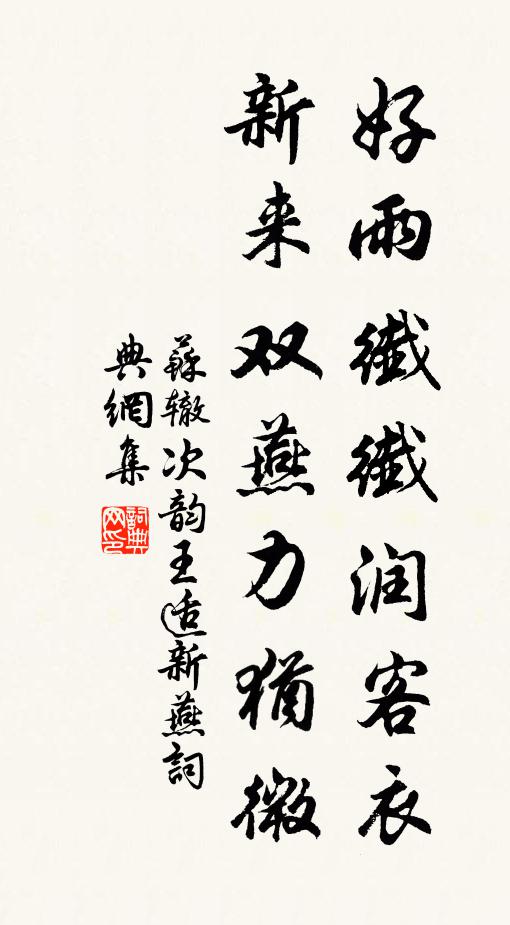 好雨纖纖润客衣
新来双燕力犹微
蘇辙次韵王适新燕詞
典網集
詞典网印